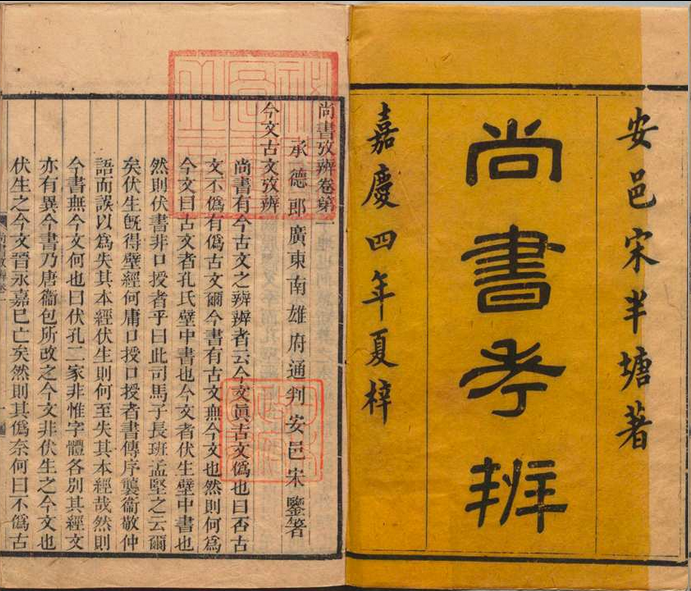 安邑宋半塘著
尚書考辨
嘉慶四年夏梓
尚書攷辨卷第一
承德郎廣東南雄府通判安邑宋鑒著
今文古文攷辨
尚書有今古文之辨辨者云今文眞古文僞也曰否古
文不僞有僞古文爾今書有古文無今文也然則何爲
今文曰古文者孔氏壁中書也今文者伏生壁中書也
然則伏書非口授者乎曰此司馬子長班孟堅之云爾
矣伏生旣得壁經何庸口授口授者書傳序襲衞敬仲
語而誤以為失其本經伏生則何至失其本經哉然則
今書無今文何也曰伏孔二家非惟字體各別其經文
亦有異今書乃唐衞包所改之今文非伏生之今文也
伏生之今文晉永嘉已亡矣然則其僞奈何曰不僞古